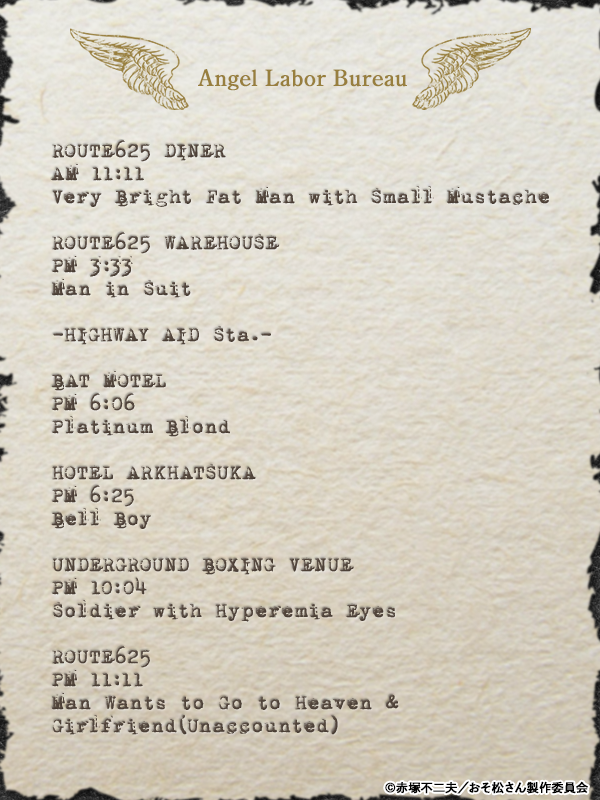 Angel Labor Bureau
ROUTE625 DINER
AM 11:11
Very Bright Fat Man with Small Mustache
ROUTE625 WAREHOUSE
PM 3:33
Man in Suit
-HIGHWAY AID Sta.-
BAT MOTEL
PM 6:06
Platinum Blond
HOTEL ARKHATSUKA
PM 6:25
Bell Boy
UNDERGROUND BOXING VENUE
PM 10:04
Soldier with Hyperemia Eyes
ROUTE625
PM 11:11
Man Wants to Go to Heaven &
Girlfriend(Unaccounted)
©赤塚不二夫／おそ松さん製作委員会